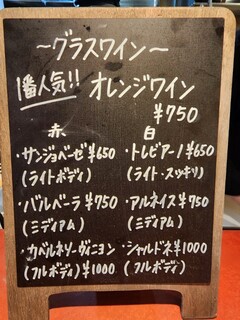 〜グラスワイン〜
1番人気!! オレンジワイン
¥750
赤 白
・サンジョベーゼ¥650 ・トレビアーノ¥650
(ライトボディ) (ライト・スッキリ)
・バルベーラ¥750 ・アルネイス¥750
(ミディアム) (ミディアム)
・カベルネソーヴィニヨン ・シャルドネ¥1000
(フルボディ)¥1000 (フルボディ)